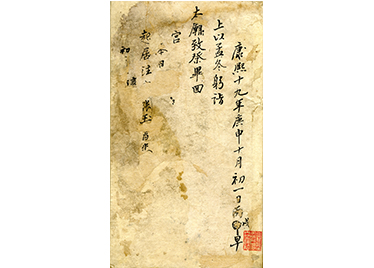 康熙十九年庚申十月初一日丙戌早
上以孟冬躬詣
太廟致祭畢回
宮
本日
起居注
初